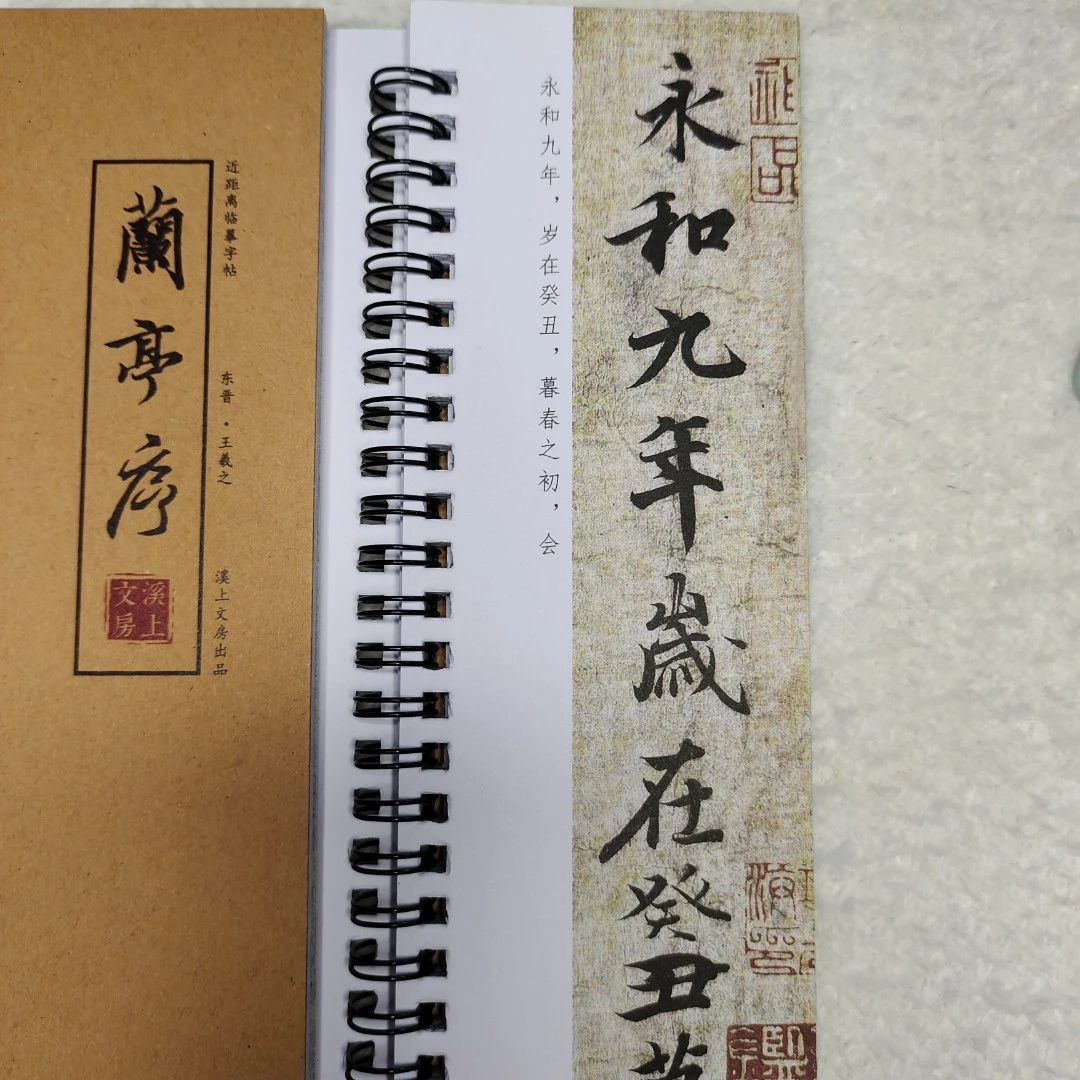 蘭亭序
溪上文房
近距离临摹字帖
东晋·王羲之
溪上文房出品
永和九年，岁在癸丑，暮春之初，会
永和九年歲在癸丑